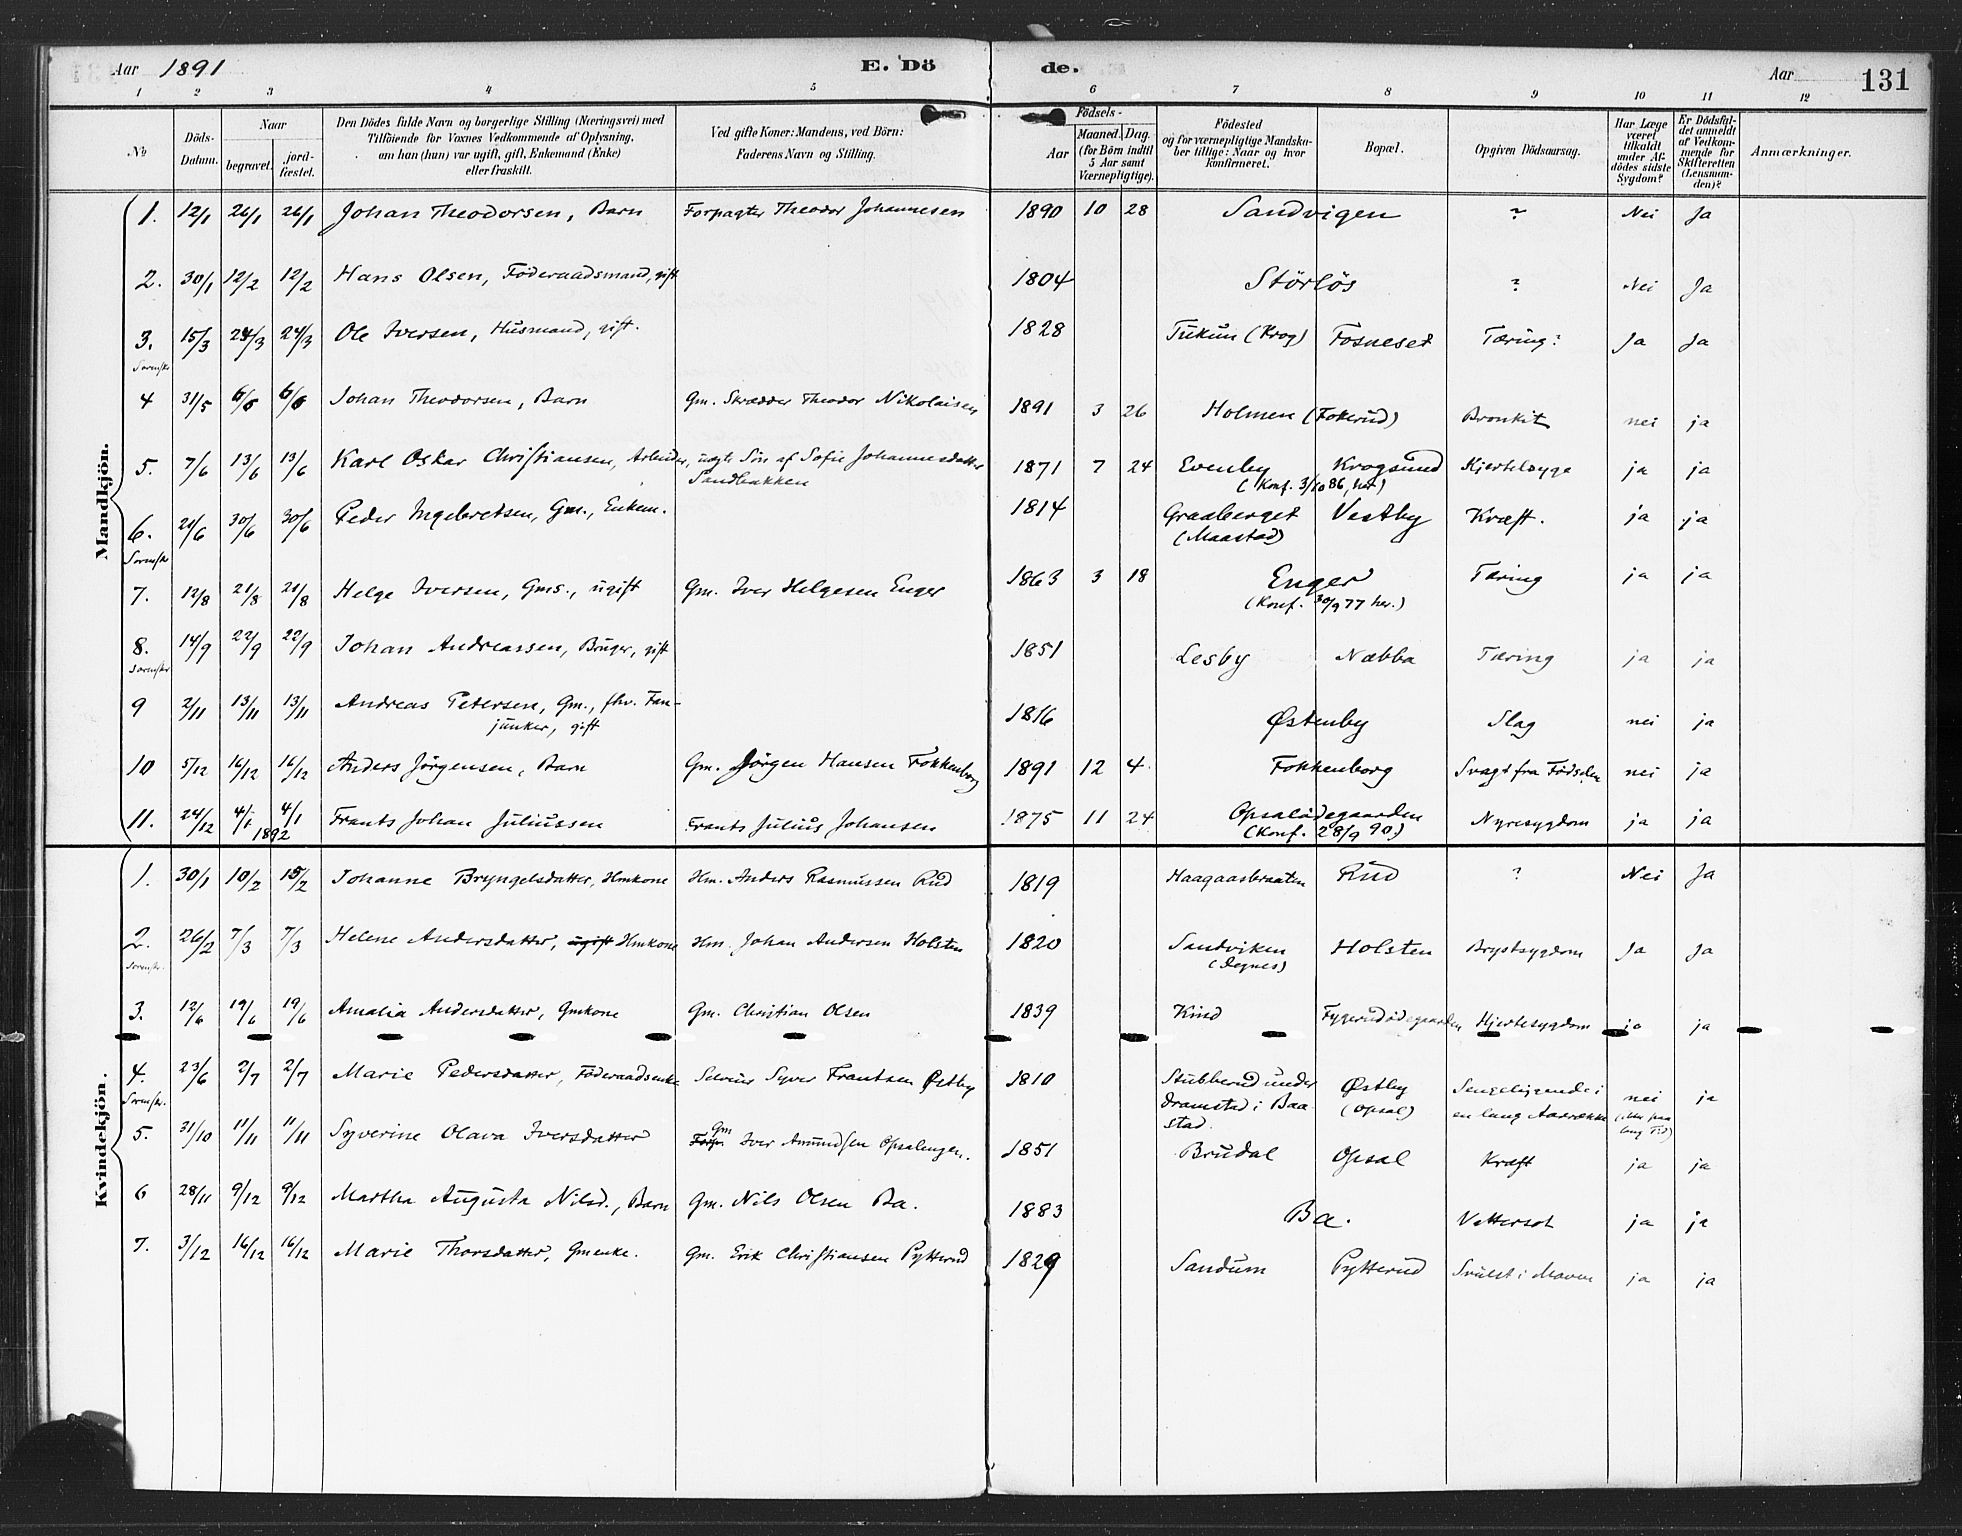 Aar 1891 E. Dö de. Aar 131
1 2 3 4 5 6 7 8 9 10 11 12
No Döds-Datum. Naar begravet. jordfæstet. Den Dödes fulde Navn og borgerlige Stilling (Næringsvei) med Tilföiende for Voxnes Vedkommende af Oplysning, om han (hun) var ugift, gift, Enkemand (Enke) eller fraskilt. Ved gifte Koner: Mandens, ved Börn: Faderens Navn og Stilling. Födsels- Aar Maaned. Dag. (for Börn indtil 5 Aar samt Værnepligtige). Födested og for værnepligtige Mandskaber tillige: Naar og hvor konfirmeret. Bopæl. Opgiven Dödsaarsag. Har Læge været tilkaldt under Afdödes sidste Sygdom? Er Dödsfaldet anmeldt af Vedkommende for Skifteretten (Lensmanden)? Anmærkninger.
Mandkjön.
1. 12/1 26/1 26/1 Johan Theodorsen, Barn Forpagter Theodor Johannesen 1890 10 28 Sandvigen ? Nei Ja
2. 30/1 12/2 12/2 Hans Olsen, Föderaadsmand, gift 1804 Störlös ? Nei Ja
3. 15/3 24/3 24/3 Ole Iversen, Husmand, gift. 1828 Tukun (Krog) Fosneset Tæring? Ja Ja
4 31/5 6/6 6/6 Johan Theodorsen, Barn Gm. Skrædder Theodor Nikolaisen 1891 3 26 Holmen (Fokerud) Bronkit nei ja
5. 7/6 13/6 13/6 Karl Oskar Christiansen, Arbeider, uægte Sön af Sofie Johannesdatter 1871 7 24 Evenby Krogsund Hjertelæge ja ja
Sandbakken (Konf. 3/10 86, her)
6. 21/6 30/6 30/6 Peder Ingebretsen, Gm., Enkem. 1814 Graaberget Vestby Kræft. ja ja
(Maastad)
7. 12/8 21/8 21/8 Helge Iversen, Gms., ugift Gm. Iver Helgesen Enger 1863 3 18 Enger Tæring ja ja
(Konf. 30/9 77 her.)
8. 14/9 22/9 22/9 Johan Andreassen, Bruger, gift 1851 Lesby Næbba Tæring ja ja
9 2/11 13/11 13/11 Andreas Petersen, Gm., fhv. Fan- 1816 Østenby Slag nei ja
junker, gift
10 5/12 16/12 16/12 Anders Jörgensen, Barn Gm. Jörgen Hansen Fokkenborg 1891 12 4 Fokkenborg Svagt fra Födselen nei ja
11. 24/12 4/1 4/1 Frants Johan Juliussen Frants Julius Johansen 1875 11 24 Opsalödegaarden Nyresygdom ja ja
1892 (Konf. 28/9 90.)
Kvindekjön.
1. 30/1 10/2 15/2 Johanne Bryngelsdatter, Hmkone Hm. Anders Rasmussen Rud 1819 Haagaasbraaten Rud ? Nei Ja
2. 26/2 7/3 7/3 Helene Andersdatter, ugift Hmkone Hm. Johan Andersen Holsten 1820 Sandviken Holsten Brystsygdom Ja Ja
(Degnes)
3. 12/6 19/6 19/6 Amalia Andersdatter, Gmkone Gm. Christian Olsen 1839 Kind Fygerudödegaarden Hjertesygdom ja ja
4. 23/6 2/7 2/7 Marie Pedersdatter, Föderaadsenke Syver Frantsen Østby 1810 Stubberud under Østby Sengeliggende i nei ja
Dramstad i Baa- (Opsal) en lang Aarrække
stad.
5. 31/10 11/11 11/11 Syverine Olava Iversdatter Gm Iver Amundsen Opsalengen. 1851 Brudal Opsal Kræft ja ja
6 28/11 9/12 9/12 Martha Augusta Nilsd., Barn Gm. Nils Olsen Ba. 1883 Ba. Vattersot ja ja
7. 3/12 16/12 16/12 Marie Thorsdatter, Gmenke. Gm. Erik Christiansen Pytterud 1829 Sandum Pytterud Svulst i Maven ja ja